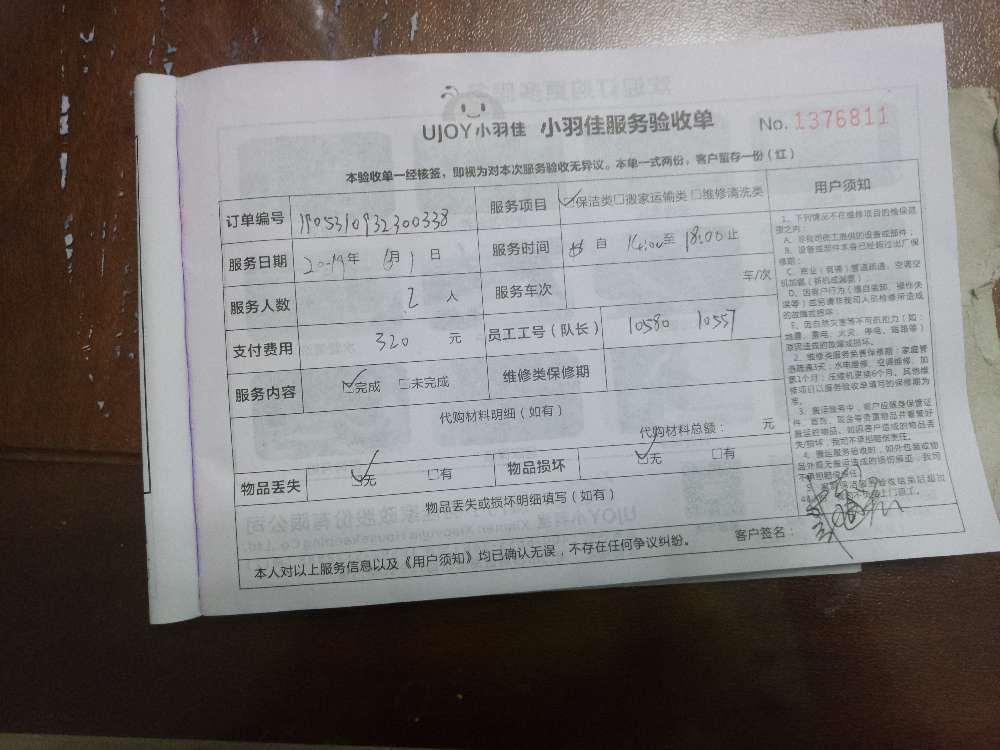 UJOY小羽佳 小羽佳服务验收单 No. 1376811
本验收单一经核签，即视为对本次服务验收无异议。本单一式两份，客户留存一份（红）
订单编号 1905310932300338 服务项目 保洁类 搬家运输类 维修清洗类
服务日期 2019年 6月1日 服务时间 自 14:00 至 18:00 止
服务人数 2 人 服务车次 车/次
支付费用 320 元 员工工号（队长） 10580 10557
服务内容 完成 未完成 维修类保修期
代购材料明细（如有）
代购材料总额： 元
物品丢失 无 有 物品损坏 无 有
物品丢失或损坏明细填写（如有）
本人对以上服务信息以及《用户须知》均已确认无误，不存在任何争议纠纷。 客户签名：
用户须知
1、下列情况不在维修项目的维保范
围之内：
A、非我司员工提供的设备或部件；
B、设备或部件本身已经超过出厂保
修期；
C、商业（餐饮）管道疏通、空调空
机加氟（拆机或漏氟）
D、因客户行为（擅自装卸、操作失
误等）或另请非我司人员检修所造成
的故障或损坏；
E、因自然灾害等不可抗拒力（如：
地震、雷电、火灾、停电、短路等）
原因造成的故障或损坏。
2、维修类服务免费保修期：家庭管
道疏通3天；水电维修、空调维修、加
氟1个月；压缩机更换6个月。其他维
修项目以服务验收单填写的保修期为
准。
3、搬运服务中，客户应随身保管证
件、首饰、现金等贵重物品并看管好
搬运的物品。如因客户造成的物品丢
失/损坏，我司不承担赔偿责任。
4、搬运服务验收时，如外包装或物
品外观无搬运造成的损伤痕迹，我司
不承担赔偿责任；